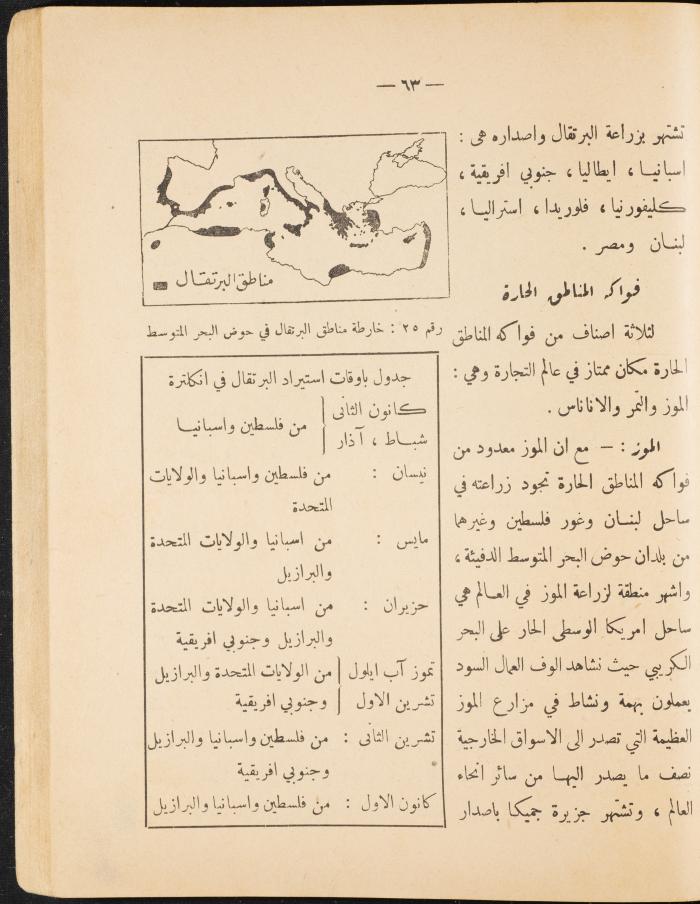 — ٦٣ —
تشتهر بزراعة البرتقال واصداره هى :
اسبانيـا ، ايطاليا ، جنوبي افريقية ،
كليفورنيا ، فلوريدا ، استراليـا ،
لبنـان ومصر .
فواكه المناطق الحارة
لثلاثة اصناف من فواكه المناطق
الحارة مكان ممتاز في عالم التجارة وهي :
الموز والتمر والاناناس .
الموز : — مع ان الموز معدود من
فواكه المناطق الحارة تجود زراعته في
ساحل لبنـان وغور فلسطين وغيرهما
من بلدان حوض البحر المتوسط الدفيئة ،
واشهر منطقة لزراعة الموز في العـالم هي
ساحل امريكا الوسطى الحار على البحر
الكريبي حيث نشاهد الوف العمال السود
يعملون بهمة ونشاط في مزارع الموز
العظيمة التي تصدر الى الاسواق الخارجية
نصف ما يصدر اليهـا من سائر انحاء
العالم ، وتشتهر جزيرة جميكـا باصدار
مناطق البرتقـال
رقم ٢٥ : خارطة مناطق البرتقال في حوض البحر المتوسط
جدول باوقات استيراد البرتقال في انكلترة
كانون الثانى
شبـاط ، آذار
من فلسطين واسبانيـا
نيسان : من فلسطين واسبانيا والولايات
المتحدة
مايس : من اسبانيا والولايات المتحدة
والبرازيل
حزيران : من اسبانيا والولايات المتحدة
والبرازيل وجنوبي افريقية
تموز آب ايلول من الولايات المتحدة والبرازيل
تشرين الاول وجنوبي افريقية
تشرين الثانى : من فلسطين واسبانيا والبرازيل
وجنوبي افريقية
كانون الاول : من فلسطين واسبانيا والبرازيل